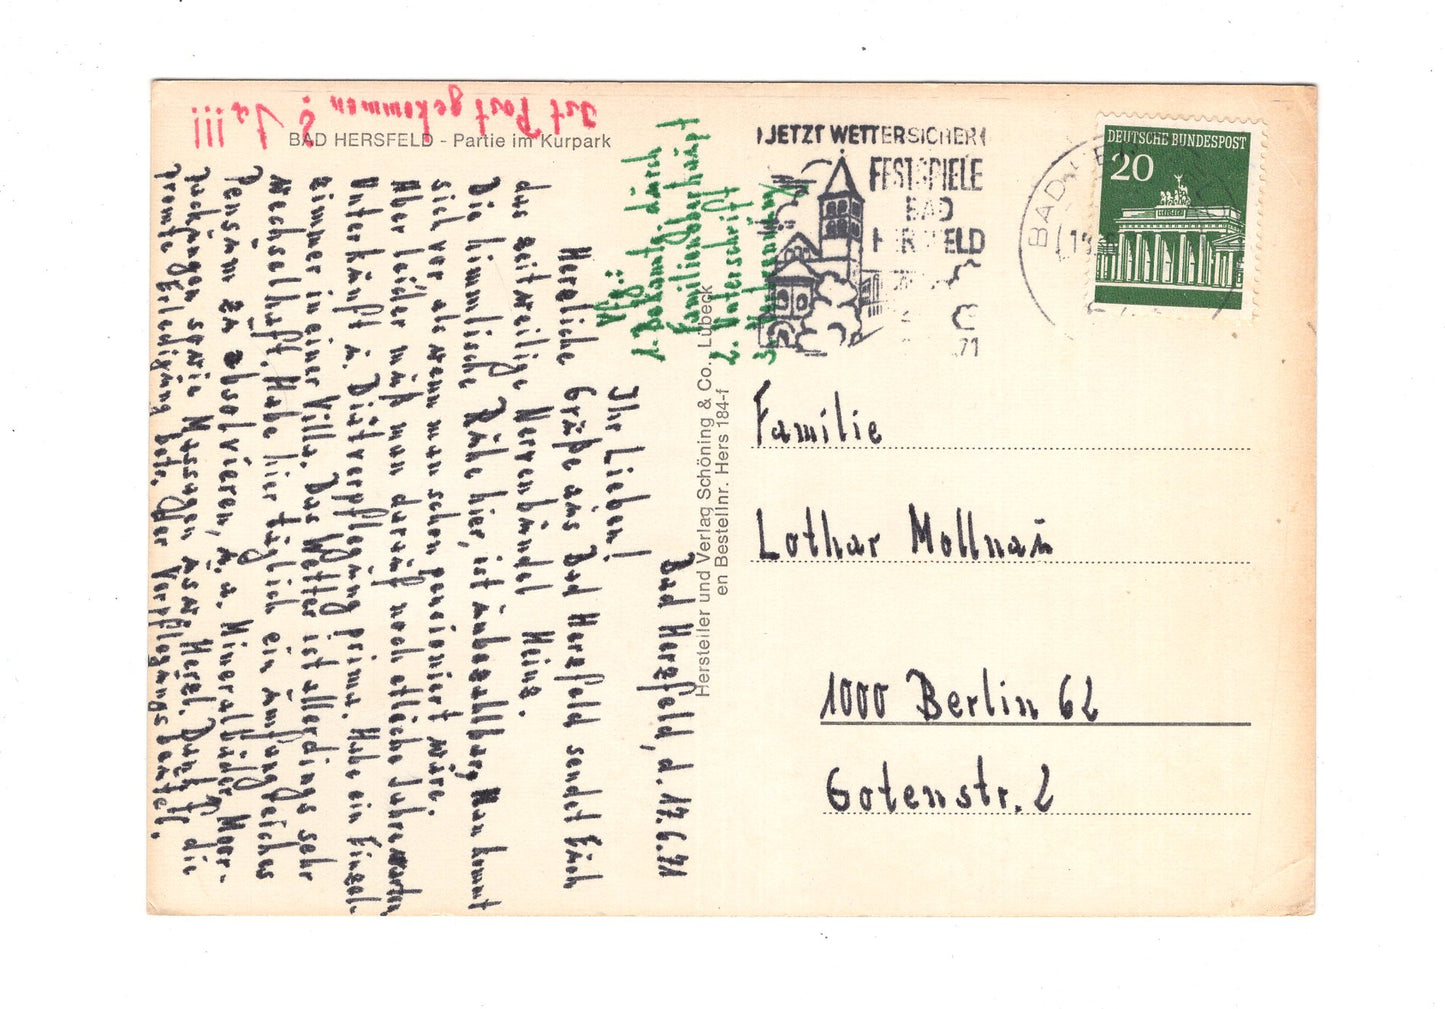 BAD HERSFELD - Partie im Kurpark
Ist Post gekommen? Ja!!!
Bad Hersfeld, d. 17.6.71
Ihr Lieben!
Herzliche Grüße aus Bad Hersfeld sendet Euch
das zeitweilige Nervenbündel Heinz.
Die himmlische Ruhe hier, ist unbezahlbar, Man kommt
sich vor als wenn man schon pensioniert wäre.
Aber leider muß man darauf noch etliche Jahre warten
Unterkunft u. Diätverpflegung prima. Habe ein Einzel-
zimmer in einer Villa. Das Wetter ist allerdings sehr
wechselhaft. Habe hier täglich ein umfangreiches
Pensum zu absolvieren, u.a. Mineralbäder Moor-
packungen sowie Massagen usw. Herzl. Dank f. die
prompte Erledigung betr. der Verpflegungsbeutel.
Vfg.:
1. Bekanntg. durch
Familienoberhaupt
2. Unterschrift
3.
Hersteller und Verlag Schöning & Co., Lübeck
en Bestellnr. Hers 184-f
JETZT WETTERSICHER
FESTSPIELE
BAD
HERSFELD
71
BAD
DEUTSCHE BUNDESPOST
20
Familie
Lothar Mollnau
1000 Berlin 62
Gotenstr. 2